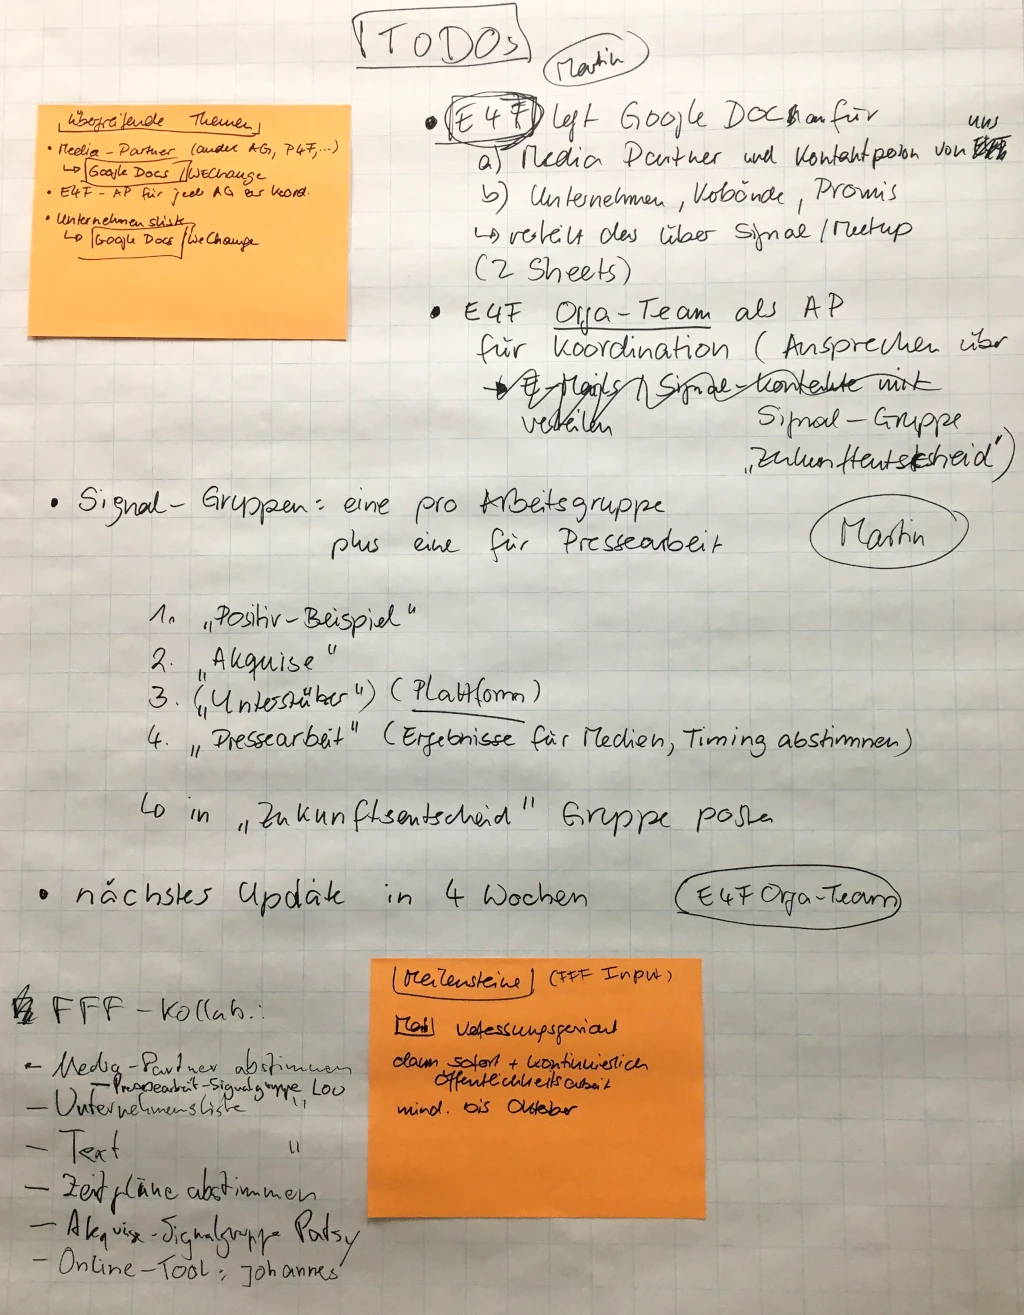 TODOs
Martin
übergreifende Themen
• Media-Partner (andere AG, P4F,...)
↳ Google Docs / WeChange
• E4F-AP für jede AG zur Koord.
• Unternehmensliste
↳ Google Docs / WeChange
• E4F legt Google Docs an für
uns
a) Media Partner und Kontaktperson von
b) Unternehmen, Verbände, Promis
↳ verteilt das über Signal/Meetup
(2 Sheets)
• E4F Orga-Team als AP
für Koordination (Ansprechen über
E-Mails / Signal-Kontakte mit
verteilen
Signal-Gruppe
„Zukunftentscheid")
• Signal-Gruppen: eine pro Arbeitsgruppe
plus eine für Pressearbeit
Martin
1. „Positiv-Beispiel"
2. „Akquise"
3. („Unterstützer") (Plattform)
4. „Pressearbeit" (Ergebnisse für Medien, Timing abstimmen)
↳ in „Zukunftsentscheid" Gruppe posten
• nächstes Update in 4 Wochen
E4F Orga-Team
Meilensteine (FFF Input)
Mai Verfassungsgericht
dann sofort + kontinuierlich
Öffentlichkeitsarbeit
mind. bis Oktober
FFF-Kollab.:
- Media-Partner abstimmen
- Pressearbeit-Signalgruppe Lou
- Unternehmensliste "
- Text "
- Zeitpläne abstimmen
- Akquise-Signalgruppe Patsy
- Online-Tool: Johannes